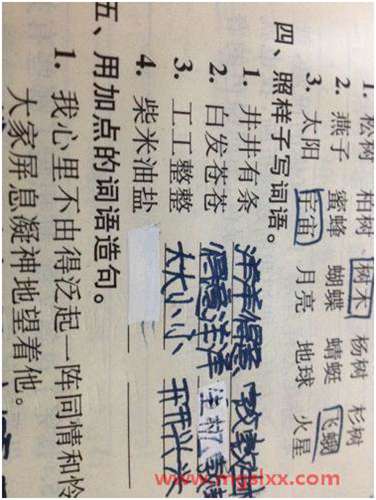 1. 松树 柏树 树木 杨树 杉树
2. 燕子 蜜蜂 蝴蝶 蜻蜓 飞蛾
3. 太阳 宇宙 月亮 地球 火星
四、照样子写词语。
1. 井井有条 洋洋得意
2. 白发苍苍 得意洋洋
3. 工工整整 大大小小
4. 柴米油盐
五、用加点的词语造句。
1. 我心里不由得泛起一阵同情和怜
大家屏息凝神地望着他。
www.mgslxx.com